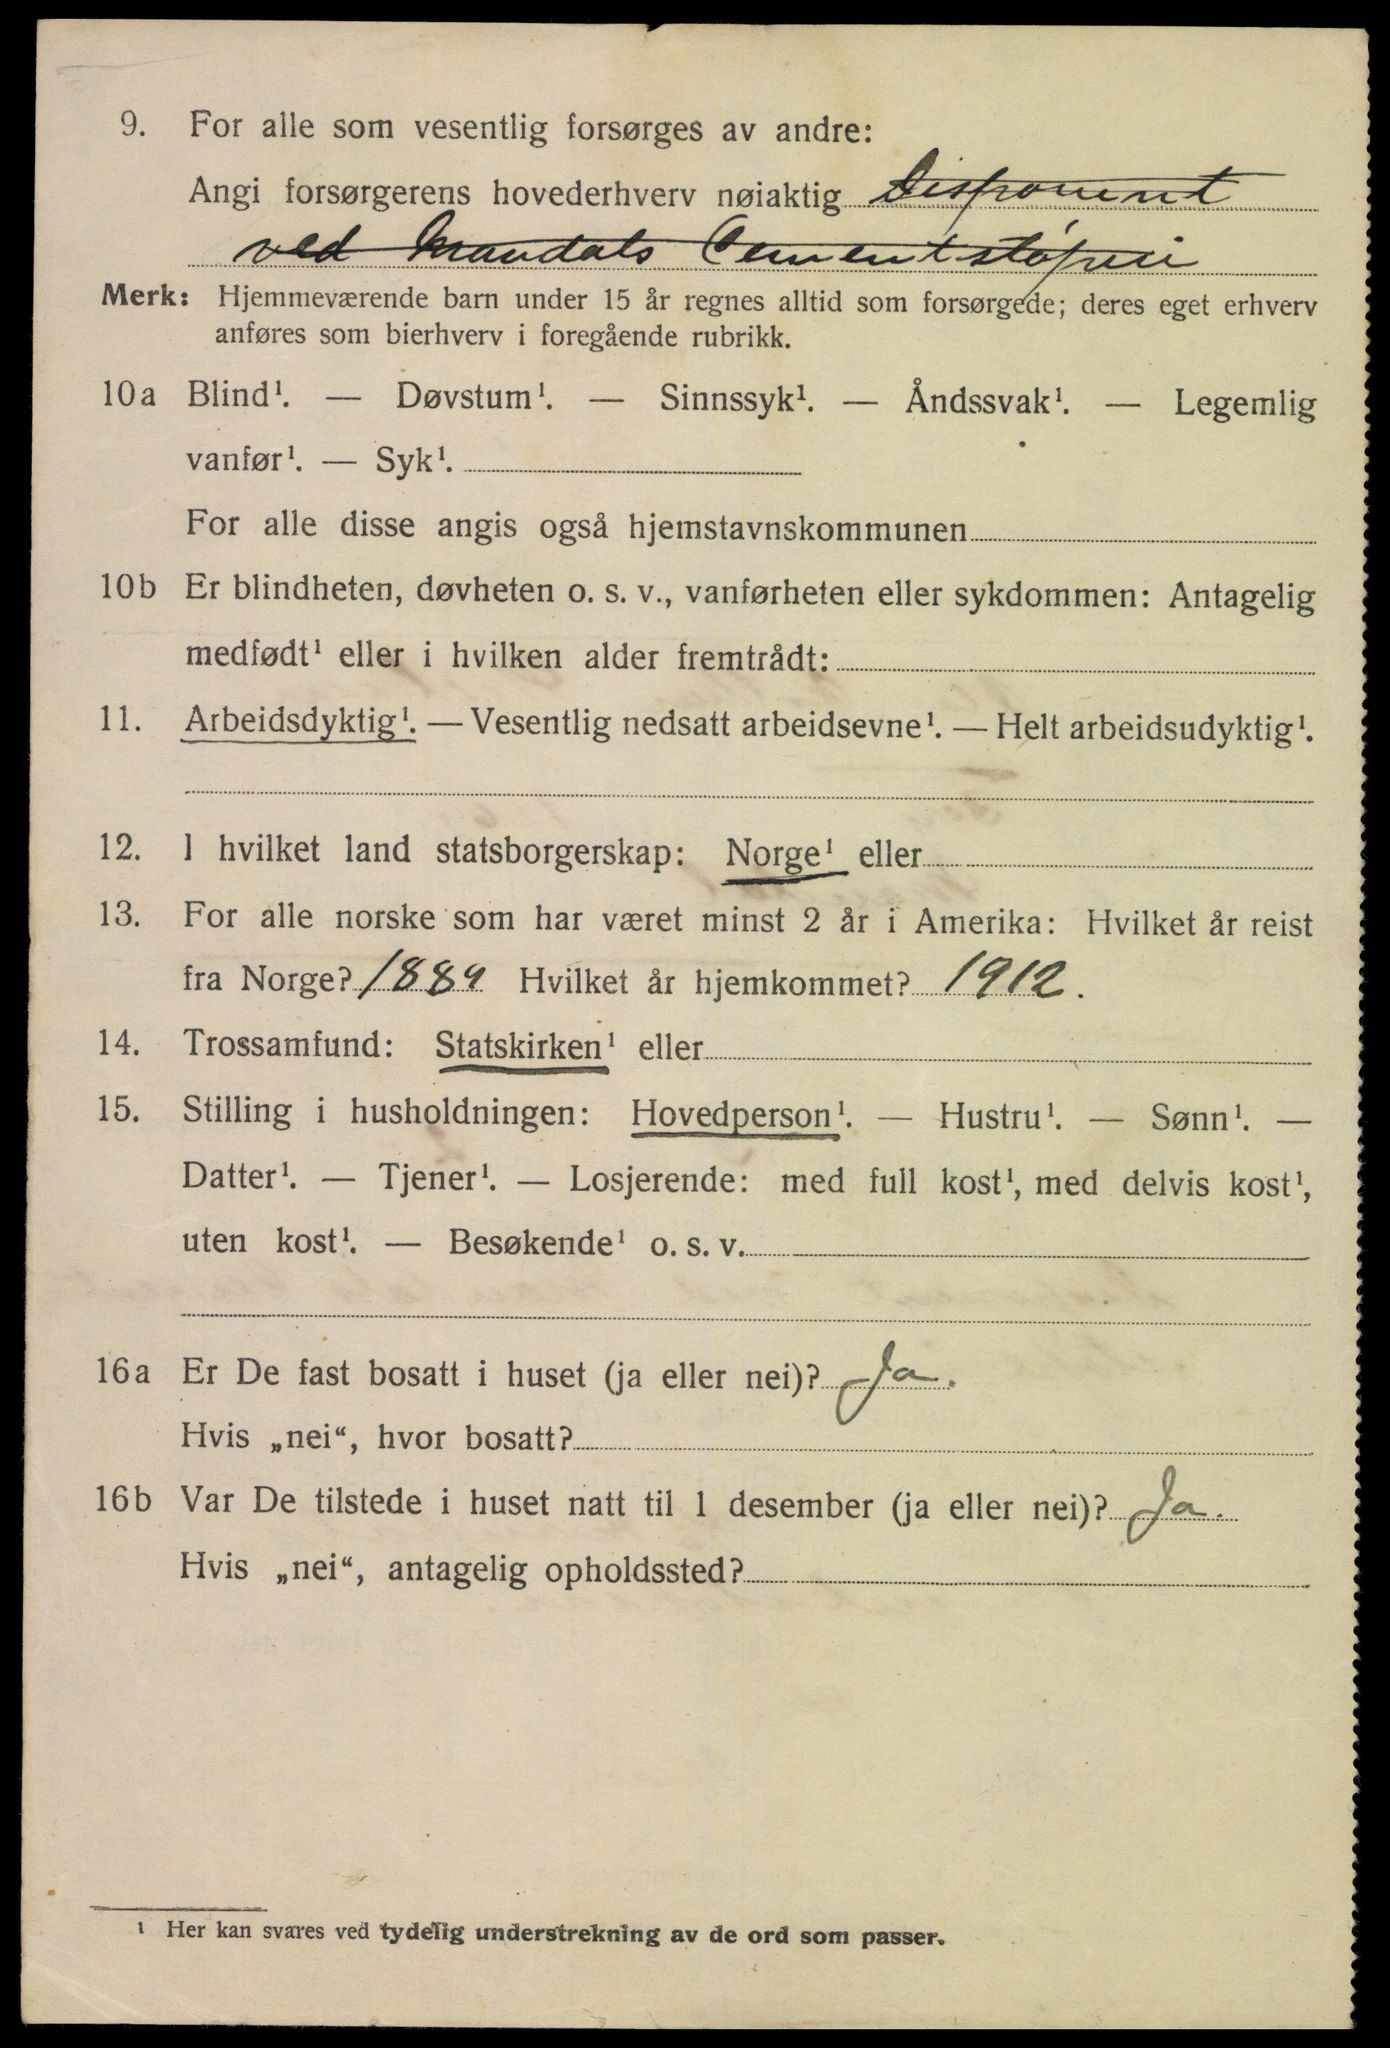 9. For alle som vesentlig forsørges av andre:
Angi forsørgerens hovederhverv nøiaktig Disponent
ved Mandals Cementstøperi
Merk: Hjemmeværende barn under 15 år regnes alltid som forsørgede; deres eget erhverv
anføres som bierhverv i foregående rubrikk.
10a Blind¹. — Døvstum¹. — Sinnssyk¹. — Åndssvak¹. — Legemlig
vanfør¹. — Syk¹.
For alle disse angis også hjemstavnskommunen
10b Er blindheten, døvheten o. s. v., vanførheten eller sykdommen: Antagelig
medfødt¹ eller i hvilken alder fremtrådt:
11. Arbeidsdyktig¹. — Vesentlig nedsatt arbeidsevne¹. — Helt arbeidsudyktig¹.
12. I hvilket land statsborgerskap: Norge¹ eller
13. For alle norske som har været minst 2 år i Amerika: Hvilket år reist
fra Norge? 1889 Hvilket år hjemkommet? 1912.
14. Trossamfund: Statskirken¹ eller
15. Stilling i husholdningen: Hovedperson¹. — Hustru¹. — Sønn¹. —
Datter¹. — Tjener¹. — Losjerende: med full kost¹, med delvis kost¹,
uten kost¹. — Besøkende¹ o. s. v.
16a Er De fast bosatt i huset (ja eller nei)? Ja.
Hvis „nei“, hvor bosatt?
16b Var De tilstede i huset natt til 1 desember (ja eller nei)? Ja.
Hvis „nei“, antagelig opholdssted?
¹ Her kan svares ved tydelig understrekning av de ord som passer.